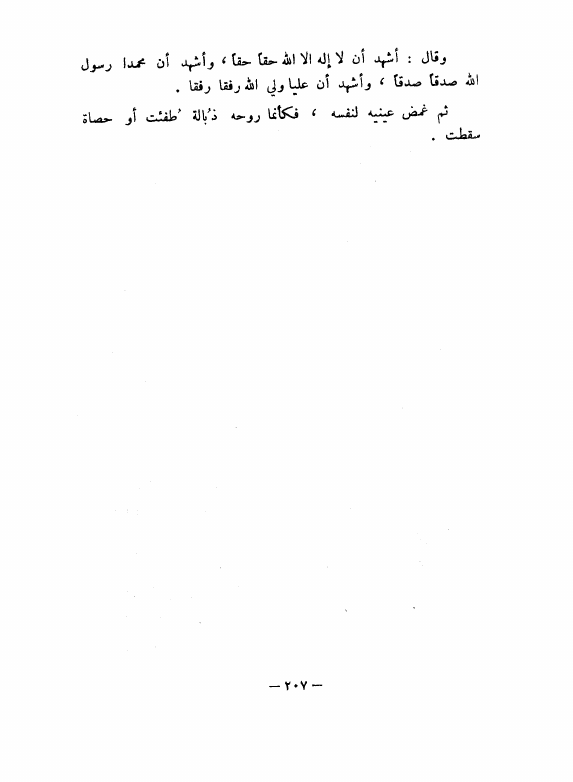 وقال : أشهد أن لا إله الا الله حقاً حقاً ، وأشهد أن محمدا رسول
الله صدقاً صدقاً ، وأشهد أن عليا ولي الله رفقا رفقا .
ثم غمض عينيه لنفسه ، فكأنما روحه ذُبالة ُطفئت أو حصاة
سقطت .
— ٢٠٧ —